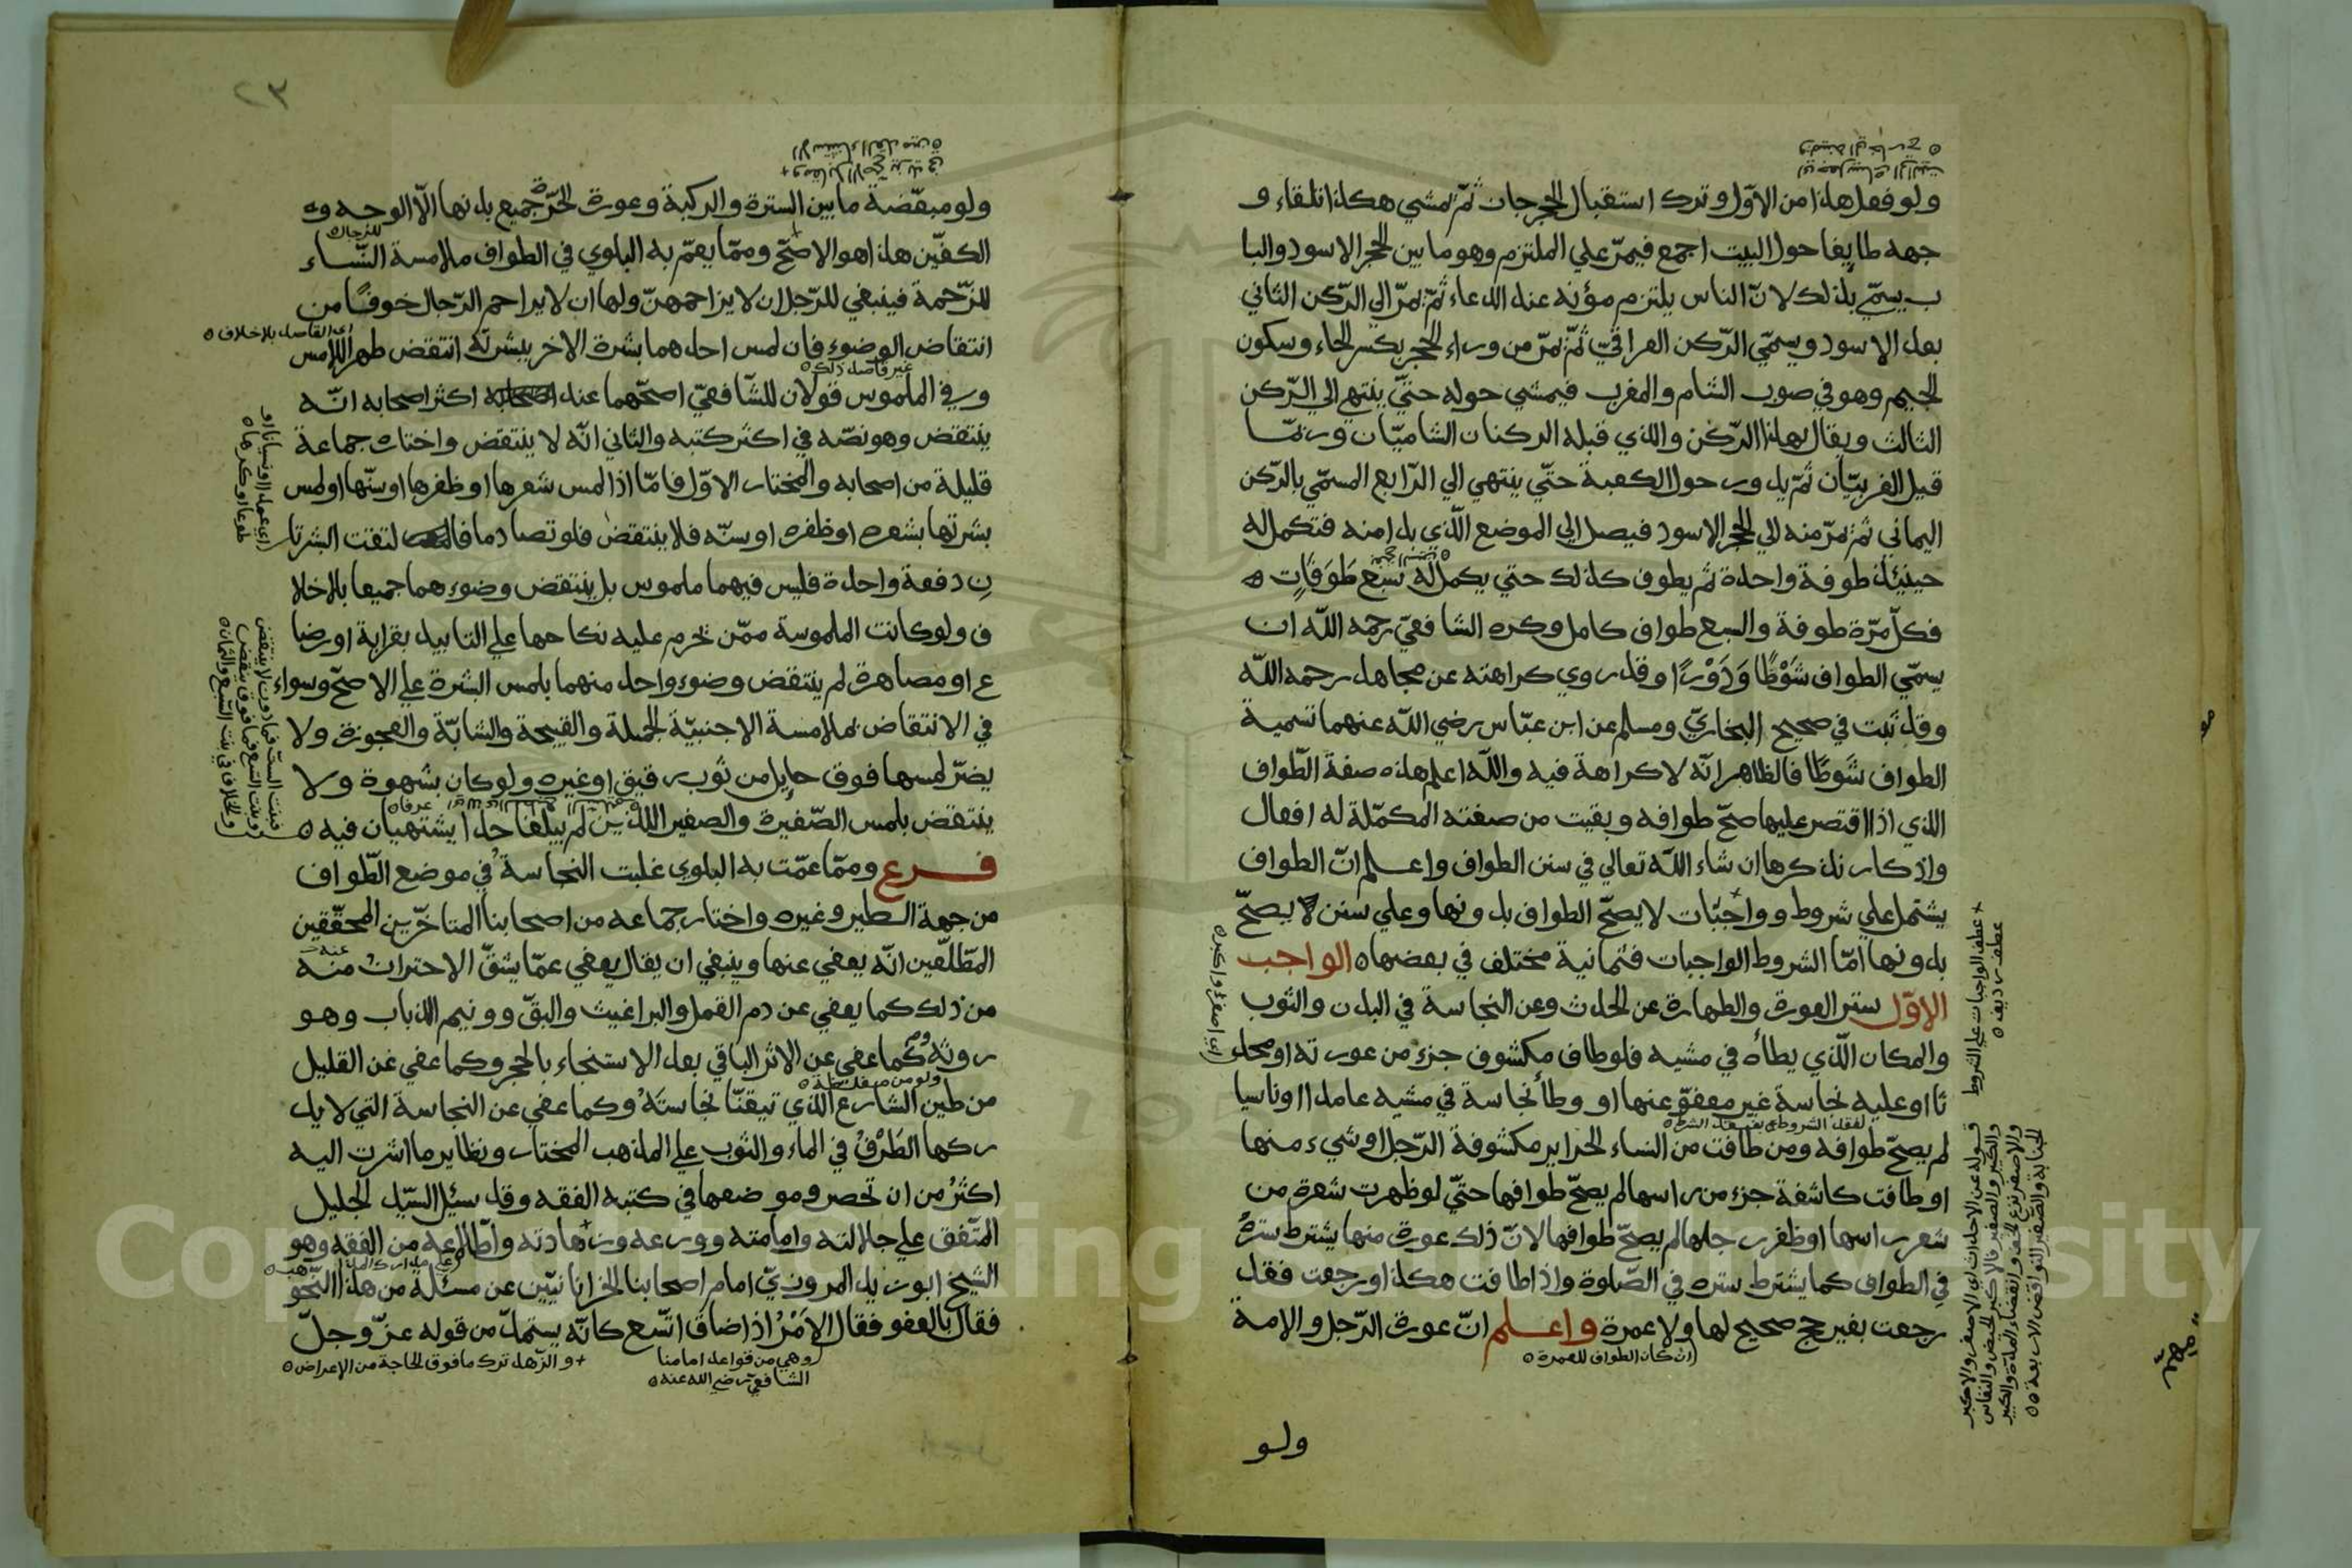 ولو فعل هذا من الاوّل وترك استقبال الحجر جان ثمّ تمشي هكذا تلقاء و
جهه طايفا حول البيت اجمع فيمرّ علي الملتزم وهو ما بين الحجر الاسود والبا
ب يسمّي بذلك لانّ الناس يلتزمونه عند الدعاء ثمّ يمرّ الي الرّكن الثاني
بعد الاسود ويسمّي الرّكن العراقيّ ثمّ يمرّ من وراء الحجر بكسر الحاء وسكون
الجيم وهو في صوب الشام والمغرب فيمشي حوله حتّي ينتهي الي الرّكن
الثالث ويقال لهذا الرّكن والذي قبله الركنان الشاميّان وربّما
قيل الغربيّان ثمّ يدور حول الكعبة حتّي ينتهي الي الرّابع المسمّي بالرّكن
اليماني ثمّ يمرّ منه الي الحجر الاسود فيصل الي الموضع الّذي بدا منه فتكمل له
حينئذ طوفة واحدة ثم يطوف كذلك حتي يكمل له سَبْعَ طَوَفَاتٍ ه
فكلّ مرّة طوفة والسبع طواف كامل وكره الشافعيّ رحمه اللّه ان
يسمّي الطواف شَوْطًا وَدَوْرًا وقد روي كراهته عن مجاهد رحمه اللّه
وقد ثبت في صحيح البخاريّ ومسلم عن ابن عبّاس رضي اللّه عنهما تسمية
الطواف شَوطًا فالظاهر انّه لا كراهة فيه واللّه اعلم هذه صفة الطّواف
الذي اذا اقتصر عليها صحّ طوافه وبقيت من صفته المكمّلة له افعال
واذكار نذكرها ان شاء اللّه تعالي في سنن الطواف واعلم انّ الطواف
يشتمل علي شروط وواجبات لا يصحّ الطواف بدونها وعلي سنن يصحّ
بدونها امّا الشروط الواجبات فثمانية مختلف في بعضها ه الواجب
الاوّل ستر العورة والطهارة عن الحدث وعن النجاسة في البدن والثوب
والمكان الّذي يطأه في مشيه فلو طاف مكشوف جزء من عورته او محد
ثا او عليه نجاسة غير معفوّ عنها او وطأ نجاسة في مشيه عامدا او ناسيا
لم يصحّ طوافه ومن طافت من النساء الحراير مكشوفة الرّجل او شيء منها
او طافت كاشفة جزء من راسها لم يصحّ طوافها حتّي لو ظهرت شعرة من
شعر راسها او ظفر رجلها لم يصحّ طوافها لانّ ذلك عورة منها يشترط سترُهُ
في الطواف كما يشترط ستره في الصّلوة واذا طافت هكذا ورجعت فقد
رجعت بغير حج صحيح لها ولا عمرة واعلم انّ عورة الرّجل والامة
(ان كان الطواف للعمرة ه
+ عطف الواجبات علي الشروط
عطف رديف ه
قوله عن الاحداث اي الاصغر والاكبر
(اي اصغر واكبر ه
ولو
٢٣
ولو مبعّضة ما بين السترة والركبة وعورة الحرّة جميع بدنها الّا الوجه وه
الكفّين هذا هو الاصحّ وممّا يعمّ به البلوي في الطواف ملامسة النّساء
للزّحمة فينبغي للرّجل ان لا يزاحمهنّ ولها ان لا يزاحم الرّجال خوفًا من
انتقاض الوضوء فان لمس احدهما بشرة الاخر ببشرته انتقض طهر اللامس
وفي الملموس قولان للشّافعيّ اصحّهما عند اكثر اصحابه انّه
ينتقض وهو نصّه في اكثر كتبه والثاني انّه لا ينتقض واختاره جماعة
قليلة من اصحابه والمختار الاوّل فامّا اذا لمس شعرها او ظفرها او سنّها او لمس
بشرتها بشعره او ظفره او سنّه فلا ينتقض فلو تصادما فالتقت البشرتا
نِ دفعة واحدة فليس فيهما ملموس بل ينتقض وضوءهما جميعا بلا خلا
ف ولو كانت الملموسة ممّن تحرم عليه نكاحها علي التابيد بقرابة او رضا
ع او مصاهرة لم ينتقض وضوء واحد منهما بلمس البشرة علي الاصحّ وسواء
في الانتقاض ملامسة الاجنبيّة الجميلة والقبيحة والشابّة والعجوزة ولا
يضرّ لمسها فوق حايل من ثوب رقيق او غيره ولو كان بشهوة ولا
ينتقض بلمس الصّغيرة والصغير اللذين لم يبلغا حدا يشتهيان فيه ه
فرع وممّا عمّت به البلوي غلبت النجاسة في موضع الطّواف
من جهة الطير وغيره واختار جماعه من اصحابنا المتاخّرين المحقّقين
المطّلعين انّه يعفي عنها وينبغي ان يقال يعفي عمّا يشقّ الاحتراز منه
من ذلك كما يعفي عن دم القمل والبراغيث والبقّ وونيم الذباب وهو
روثه وكما عفي عن الاثر الباقي بعد الاستنجاء بالحجر وكما عفي عن القليل
من طين الشارع الّذي تيقنّا نجاستَهُ وكما عفي عن النجاسة التي لا يد
ركها الطَرْفُ في الماء والثوب علي المذهب المختار ونظاير ما اشرت اليه
اكثرُ من ان تحصر ومواضعها في كتبه الفقه وقد سئل السيّد الجليل
المتّفق علي جلالته وامامته وورعه وزهادته واطّلاعه من الفقه وهو
الشيخ ابو زيد المروزيّ امام اصحابنا الخراسانيّين عن مسئلة من هذا النّحو
فقال بالعفو فقال الاَمْرُ اذا ضاق اتّسع كانّه يستملّ من قوله عزّ وجلّ
(وهي من قواعد امامنا
الشافعي رضي الله عنه ه
+ والزّهد ترك ما فوق الحاجة من الإعراض ه
للرجال ه
(اي القاصد بلا خلاف ه
(اي عمدا او نسيانا او
طوعا او كرها ه
ولو من مغلظة ه